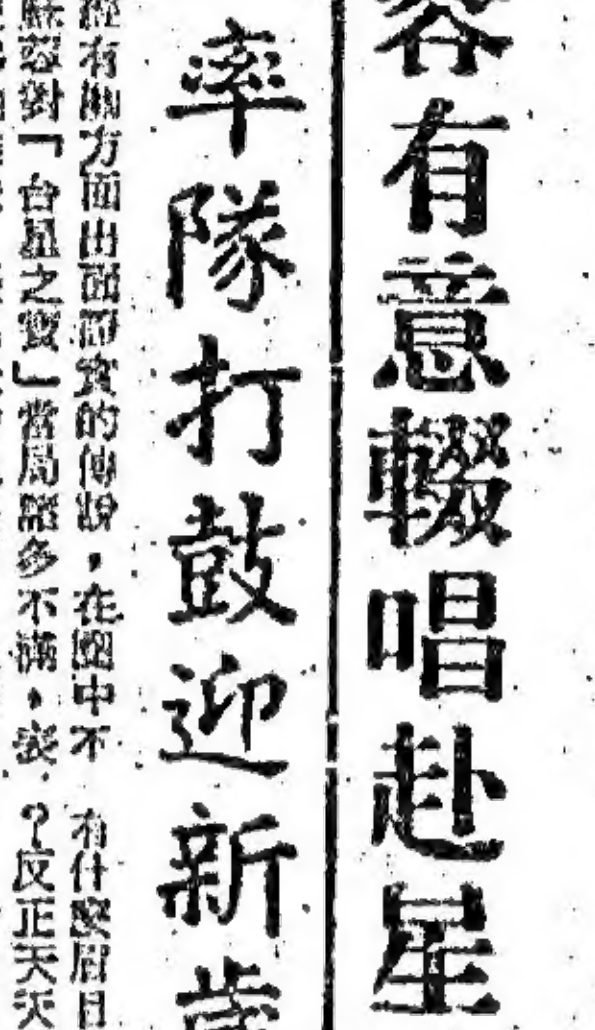 容有意輟唱赴星
率隊打鼓迎新歲
經有關方面出面證實的傳說，在圈中不
蘇蓉對「台星之寶」當局諸多不滿，表
有什麼眉目
？反正天天